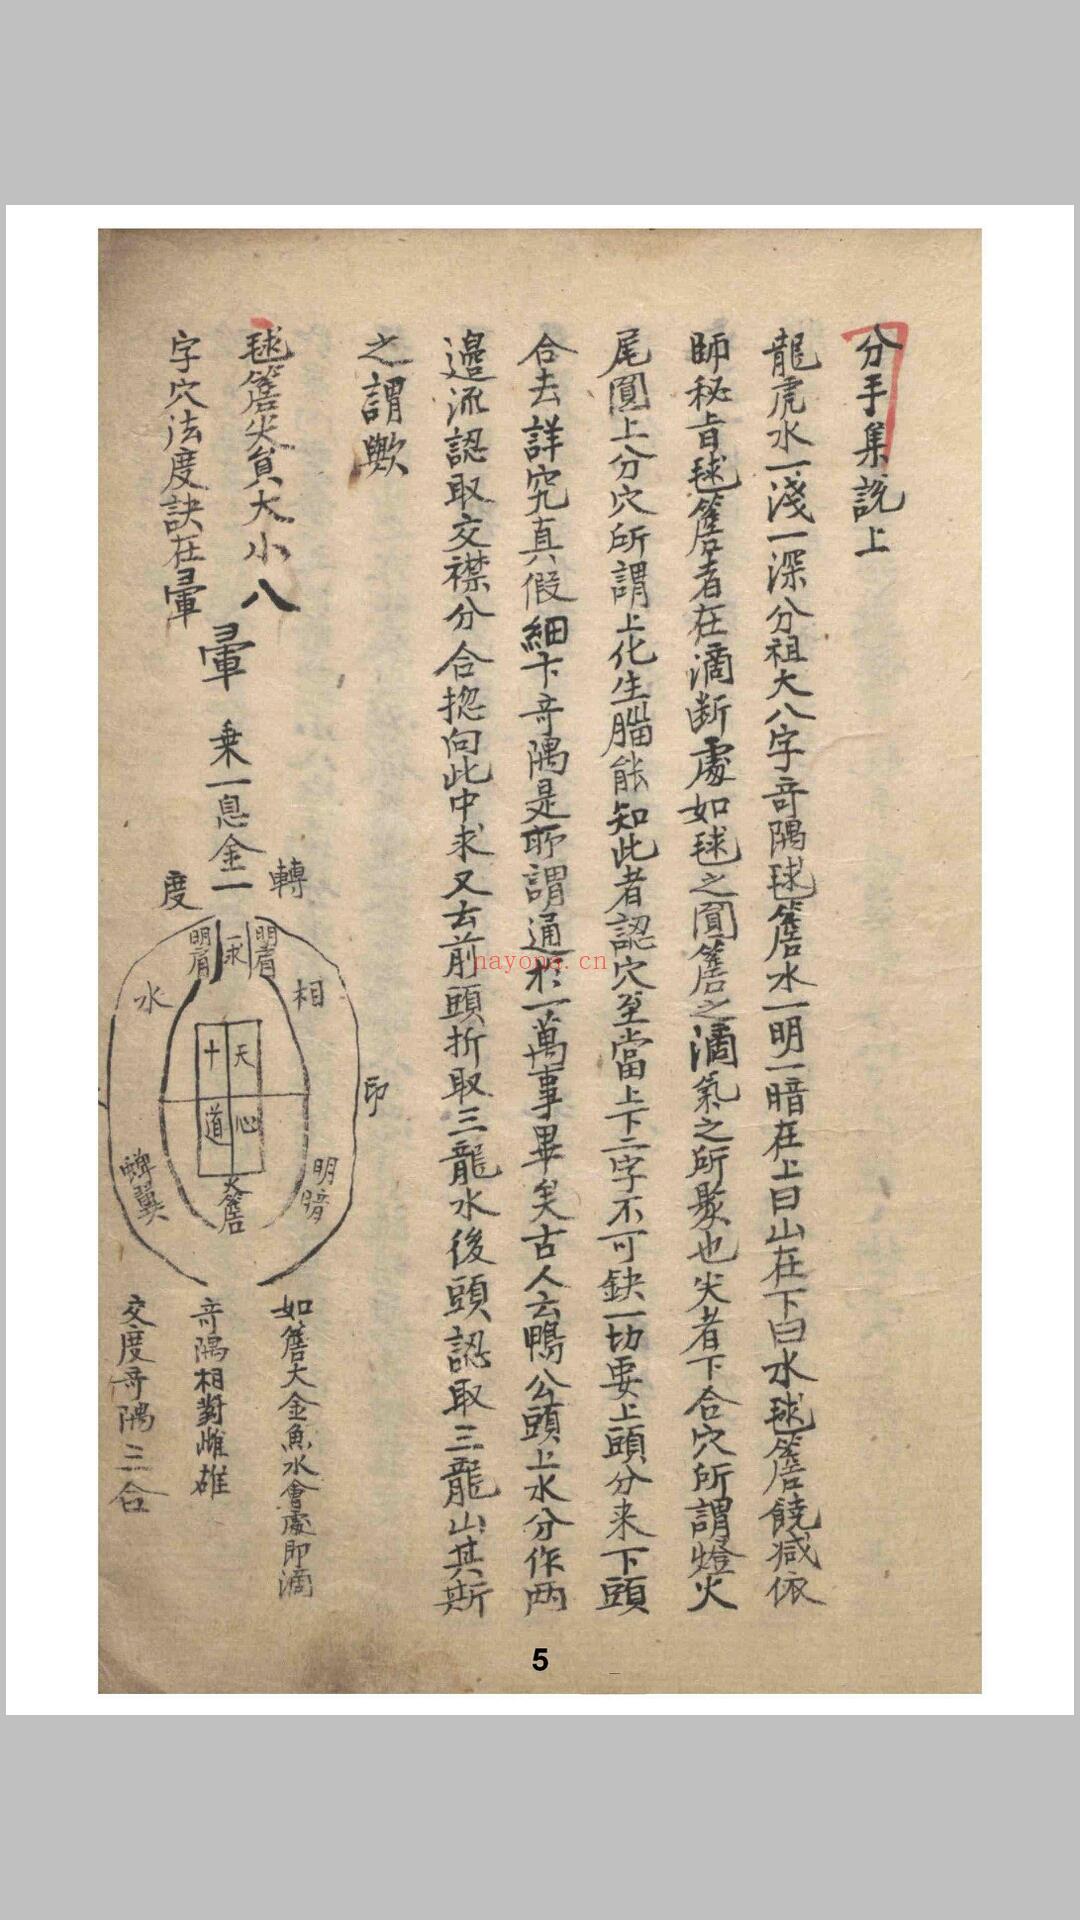 分手集説上
龍虎水一淺一深分祖大八字竒隅毬簷水一明一暗在上曰山在下曰水毬簷饒减依
師秘旨毬簷者在滴断處如毬之圓簷之滴氣之所聚也尖者下合穴所謂燈火
尾圓上分穴所謂上化生腦能知此者認穴至當上下二字不可缺一切要上頭分来下頭
合去詳究真假細卞竒隅是所謂通於一萬事畢矣古人云鴨公頭上水分作两
邉流認取交襟分合揔向此中求又去前頭折取三龍水後頭認取三龍山其斯
之謂歟
毬簷尖負大小八
字穴法度訣在暈
暈 乗一息金一
轉
度
明肩
一求
明肩
相
水
天心
十道
印
明暗
蟬翼
尖簷
如簷大金魚水會處即滴
竒隅相對雌雄
交度竒隅三合
nayona.cn
5